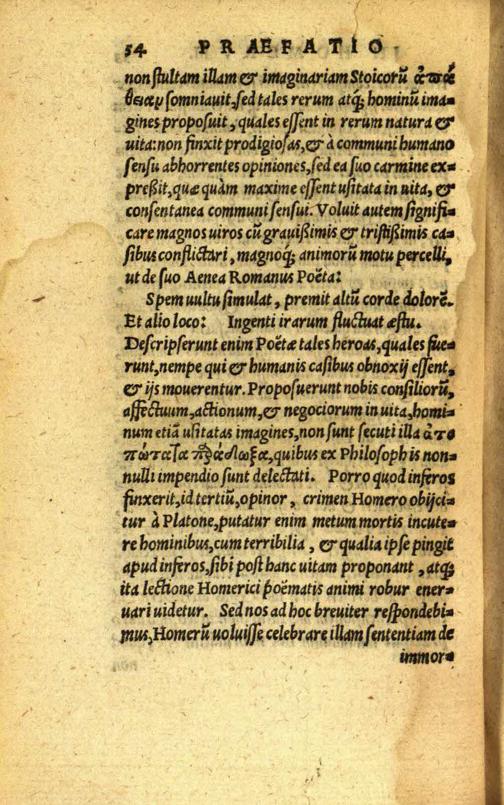 54 PRÆFATIO
non ſtultam illam & imaginariam Stoicorū ἀπά
θειαν ſomniauit, ſed tales rerum atq; hominū ima-
gines propoſuit, quales eſſent in rerum natura &
uita: non finxit prodigioſas, & à communi humano
ſenſu abhorrentes opiniones, ſed ea ſuo carmine ex-
preßit, quæ quàm maxime eſſent uſitata in uita, &
conſentanea communi ſenſui. Voluit autem ſignifi-
care magnos uiros cū grauißimis & triſtißimis ca-
ſibus conflictari, magnoq; animorū motu percelli,
ut de ſuo Aenea Romanus Poëta:
Spem uultu ſimulat, premit altū corde dolorē.
Et alio loco: Ingenti irarum fluctuat æſtu.
Deſcripſerunt enim Poëtæ tales heroas, quales fue-
runt, nempe qui & humanis caſibus obnoxij eſſent,
& ijs mouerentur. Propoſuerunt nobis conſiliorū,
affectuum, actionum, & negociorum in uita, homi-
num etiā uſitatas imagines, non ſunt ſecuti illa ἀτο
πώτατα παράδοξα, quibus ex Philoſophis non-
nulli impendio ſunt delectati. Porro quod inferos
finxerit, id tertiū, opinor, crimen Homero obijci-
tur à Platone, putatur enim metum mortis incute-
re hominibus, cum terribilia, & qualia ipſe pingit
apud inferos, ſibi poſt hanc uitam proponant, atq;
ita lectione Homerici poëmatis animi robur ener-
uari uidetur. Sed nos ad hoc breuiter reſpondebi-
mus, Homerū uoluiſſe celebrare illam ſententiam de
immor-